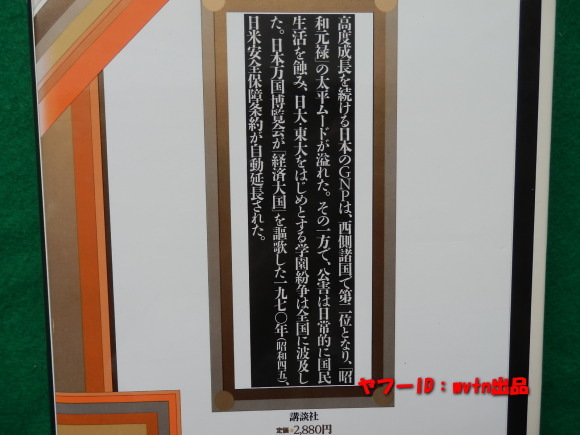 高度成長を続ける日本のGNPは、西側諸国で第二位となり、「昭
和元禄」の太平ムードが溢れた。その一方で、公害は日常的に国民
生活を蝕み、日大・東大をはじめとする学園紛争は全国に波及し
た。日本万国博覧会が「経済大国」を謳歌した一九七〇年(昭和四五)、
日米安全保障条約が自動延長された。
講談社
定価=2,880円
ヤフーID：mvtn出品